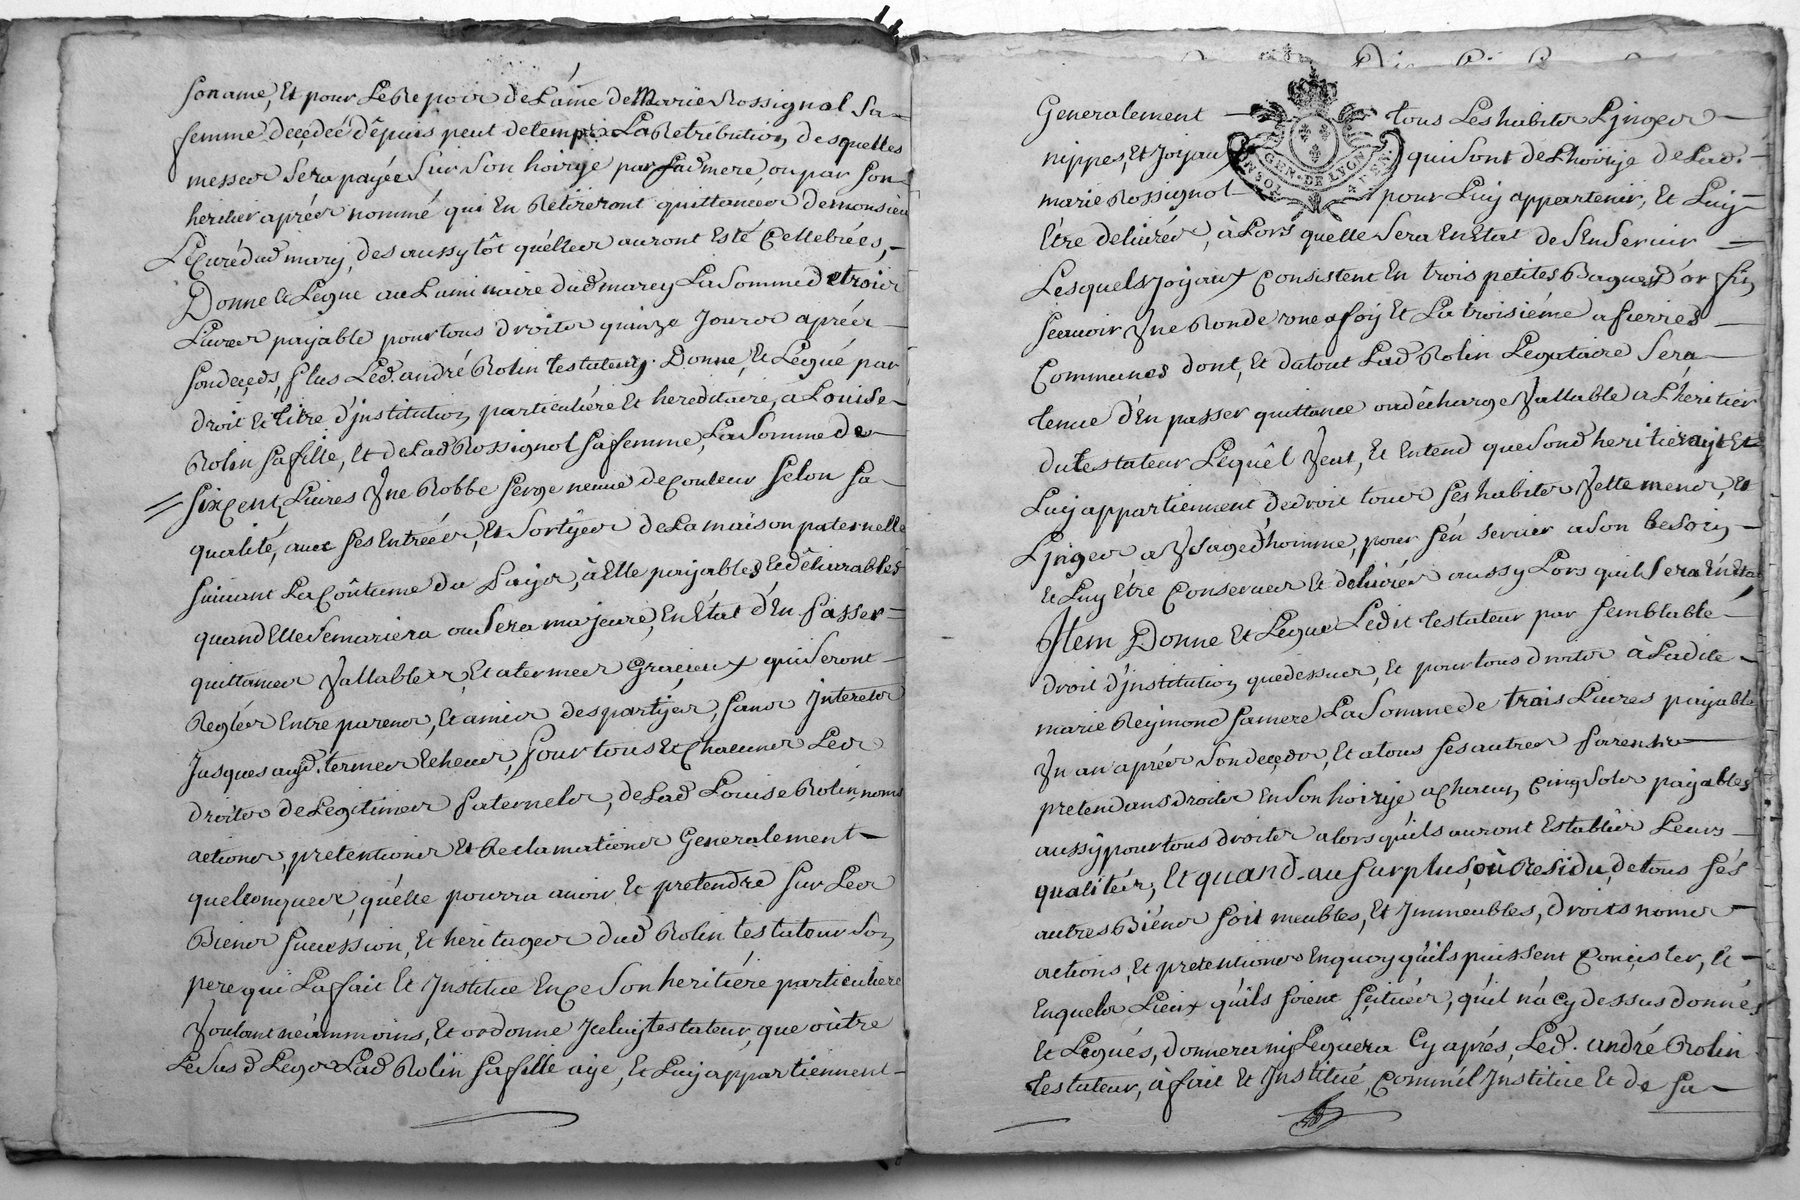 son ame, Et pour Le Repoix de L'ame de Marie Rossignol sa
femme decedeé dêpuis peut de temps La Retribution desquelles
messes Sera payée Sur Son hoirye par Lad. mere, ou par Son
heritier aprés nommé qui En Retireront quittances de monsieu
Le Curé dud mary, des aussy tôt quélles auront Esté Cellebrées,
Donne et Legue au Luminaire dud marey La Somme de trois
Livres payable pour tous droits quinze Jours aprés
son deçeds, plus Led. andré Rolin testateur, Donne, Et Legué par
droit Et titre d'institution particuliére Et hereditaire, a Louise
Rolin sa fille, Et de Lad Rossignol sa femme, La Somme de
six Cent Livres Vne Robbe serge neuve de Couleur selon sa
qualité, avec ses Entreés, Et Sortyes de La maison paternelle
suivant La Coûtume du Païs, à Elle payables Et délivrables
quand Elle Se mariera ou Sera majeure, En Etat d'En passer
quittances Vallables, Et a termes Gracieux qui Seront
Reglés Entre parens, Et amis des partyes, sans Interets
Jusques auxd. termes Echeus, pour tous Et Chacuns Les
droits de Legitimes paternels, de Lad Louise Rolin, noms
actions, pretentions Et Reclamations Generalement
quelconques, qu'elle pourra avoir Et pretendre sur Les
Biens succession, Et heritages dud Rolin testateur Son
pere qui L'a fait Et Institue En Ce Son heritiére particuliere
Voulant néammoins, Et ordonne Iceluy testateur, que oûtre
Le Susd Legs Lad Rolin sa fille aye, Et Luy appartiennent
Generalement tous Les habits Linges
nippes, Et Joyaux qui Sont de L'hoirye de Lad.
marie Rossignol pour Luy appartenir, Et Luy
Être delivrés, à Lors quelle Sera En Etat de S'En Servir
Lesquels Joyaux Consistent En trois petites Bagues d'or fin
scavoir Vne Ronde vne a foy Et La troisiéme a pierres
Communes dont, Et du tout Lad Rolin Legataire Sera
tenue d'En passer quittance ou décharge Vallable a L'heritier
du testateur Lequêl Veut, Et Entend que Sond heritier ayt Et
Luy appartiennent de droit tous ses habits Vettemens, Et
Linges a Vsage d'homme, pour s'én servir a Son besoin
Et Luy Être Conserves Et delivrés aussy Lors qu'il Sera En Etat
Item Donne Et Legue Ledit testateur par semblable
droit d'institution que dessus, Et pour tous droits à Ladite
marie Reymond sa mere La Somme de trois Livres payable
Vn an aprés Son deçeds, Et a tous ses autres parents
pretendans droits En Son hoirye a Chacun Cinq Sols payables
aussy pour tous droits alors qu'ils auront Establir Leurs
qualités, Et quand au surplus, où Residu, de tous sés
autres Biéns soit meubles, Et Immeubles, droits noms
actions, Et pretentions En quoy qu'ils puissent Conçister, Et
En quels Lieux qu'ils soient sçitués, qu'il n'a Cy dessus donnés
Et Legués, donnera ny Leguera Cy aprés, Led. andré Rolin
testateur, à fait Et Institué, Comme il Institue Et de sa
GEN. DE LYON